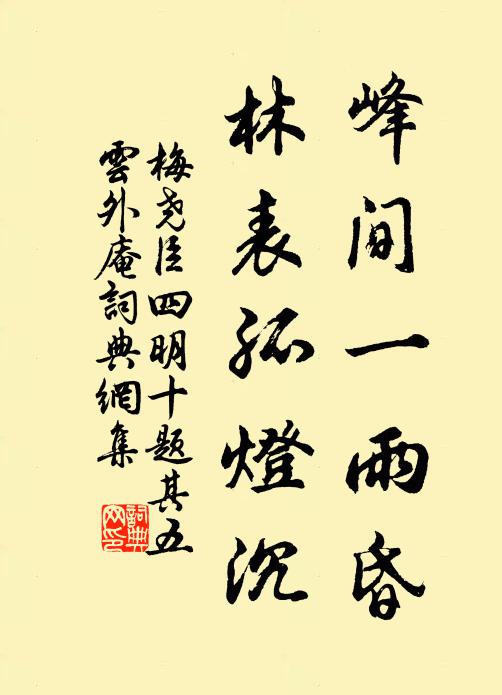 峰間一雨昏
林表孤燈沉
梅堯臣四明十題其五
雲外庵詞典網集
詞典網印